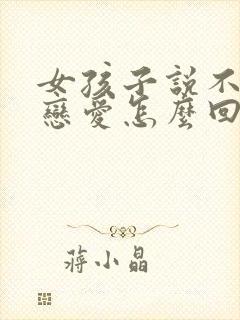 女孩子說不
戀愛怎麼回
蔣小晶